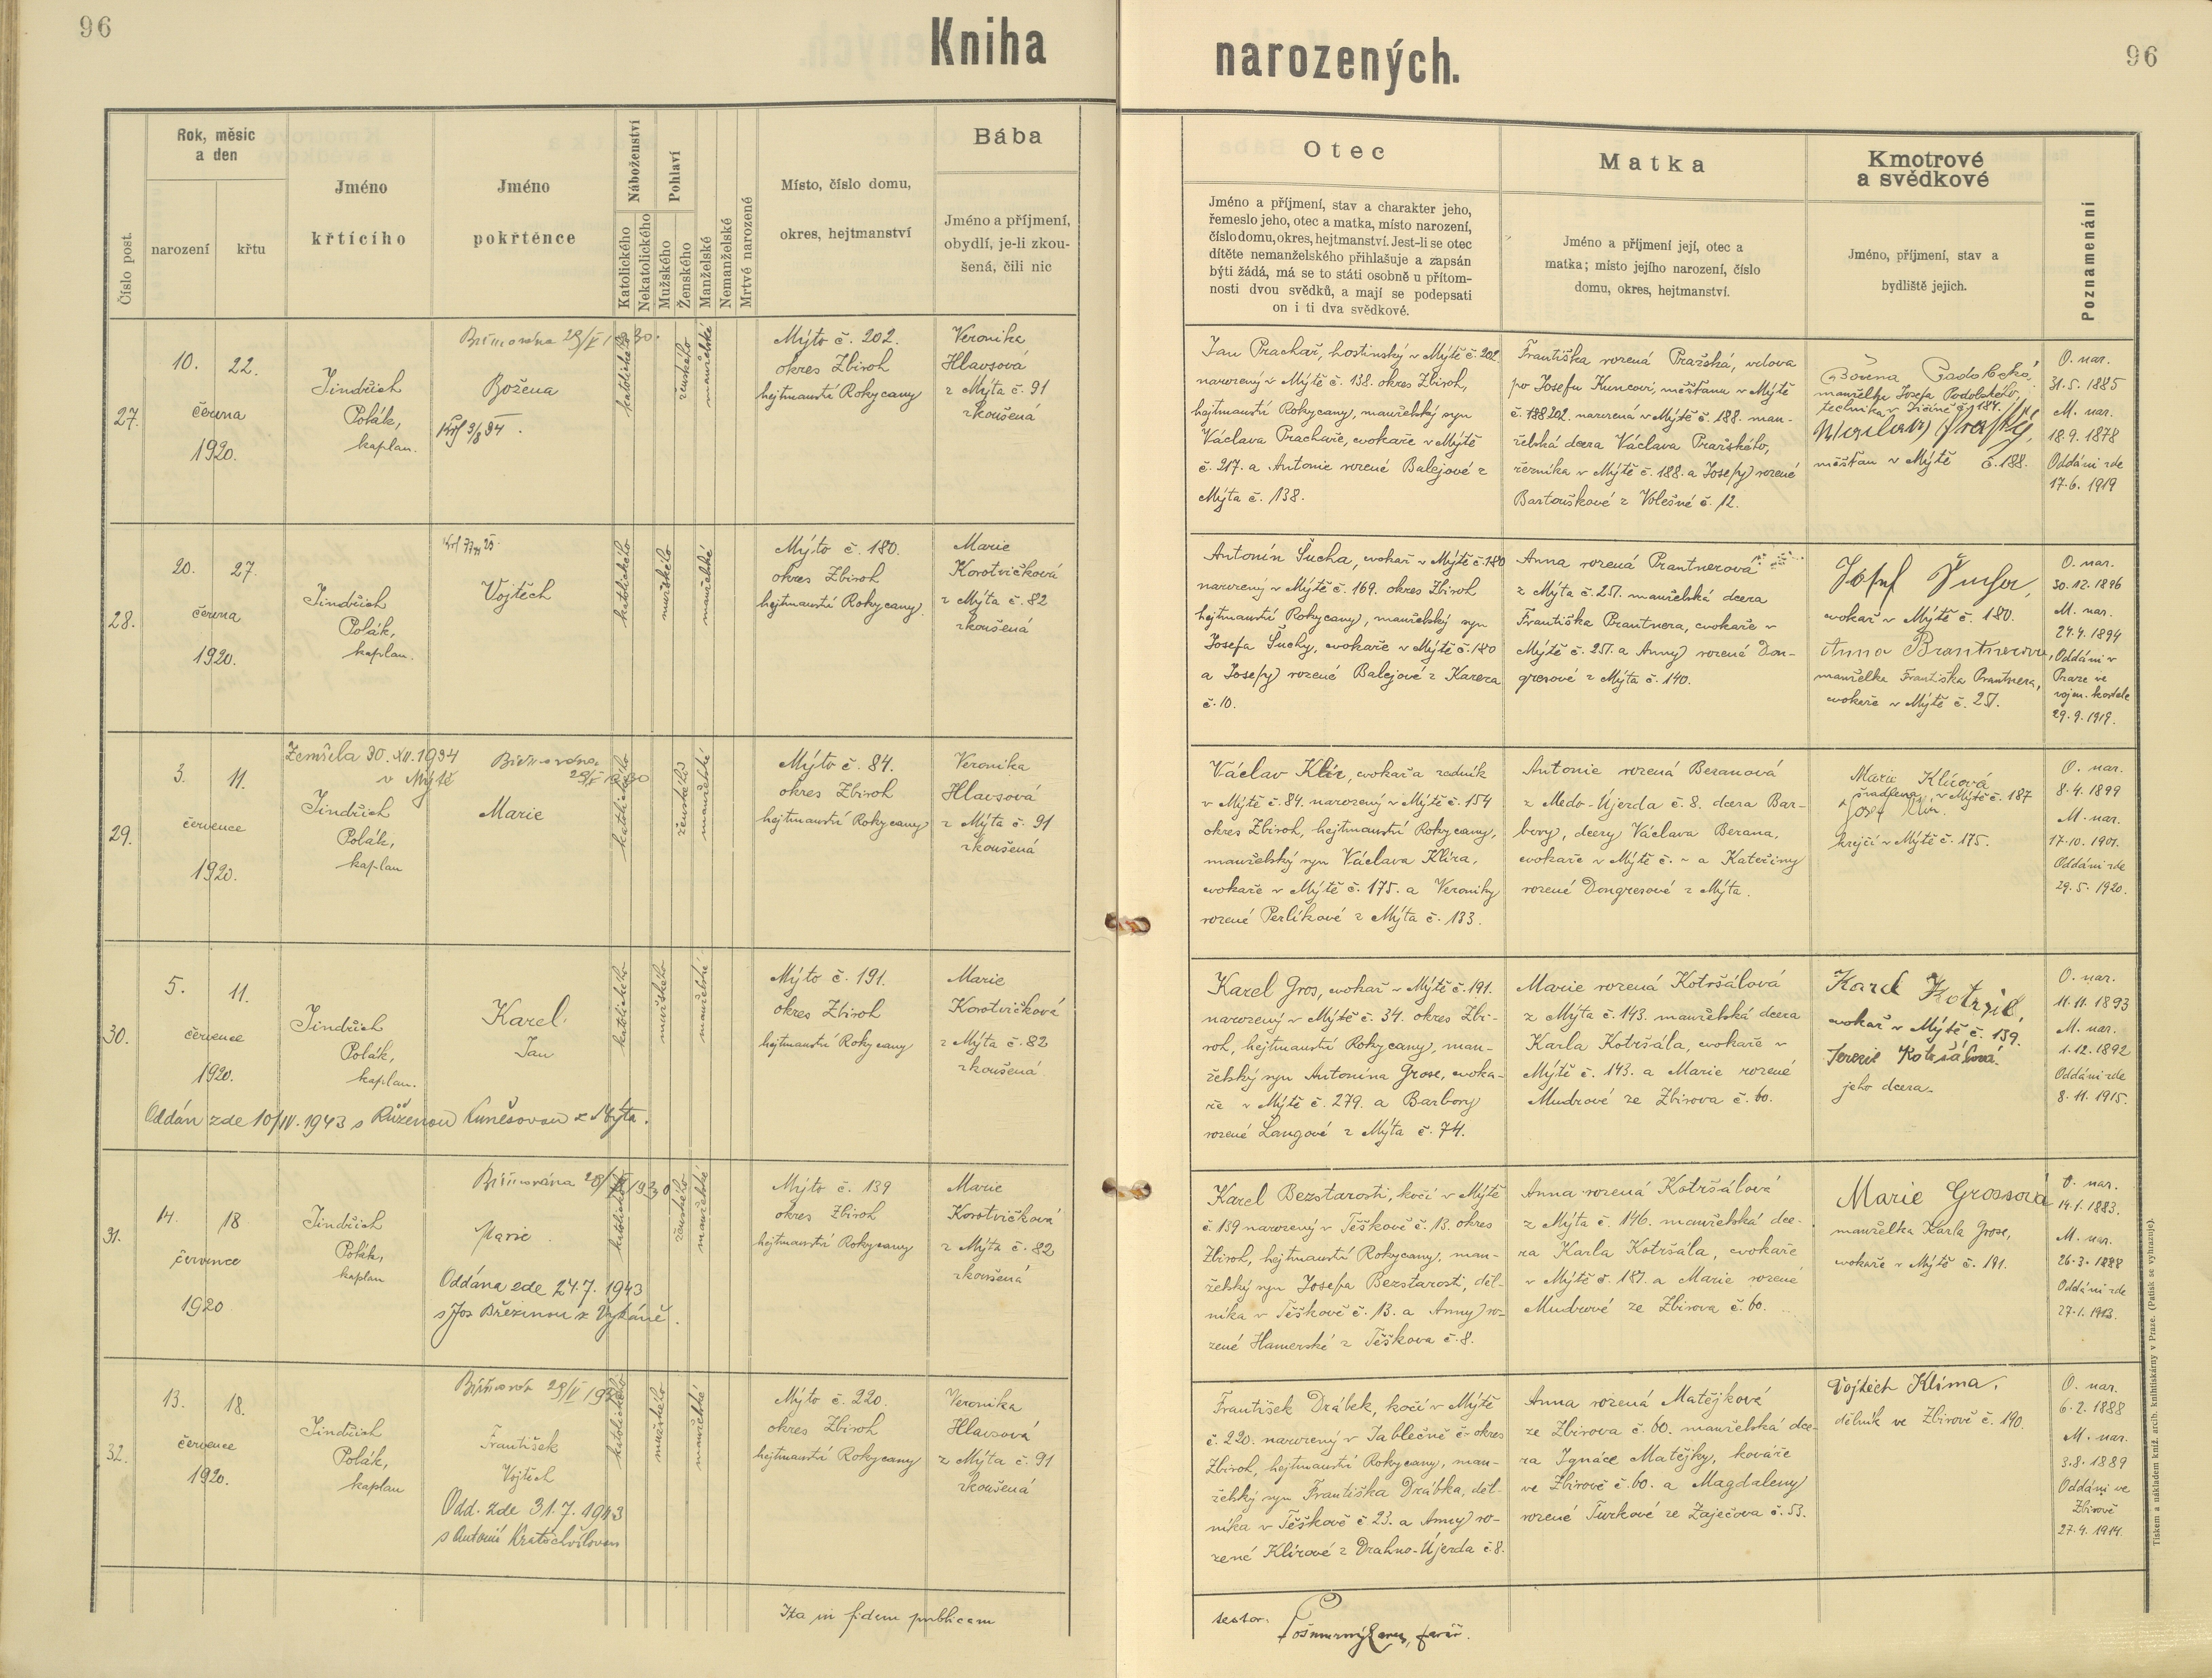 96
Kniha
narozených.
96
Číslo post.
Rok, měsíc
a den
narození
křtu
Jméno
křtícího
Jméno
pokřtěnce
Náboženství
Katolického
Nekatolického
Pohlaví
Mužského
Ženského
Manželské
Nemanželské
Mrtvě narozené
Místo, číslo domu,
okres, hejtmanství
Bába
Jméno a příjmení,
obydlí, je-li zkou-
šená, čili nic
Otec
Jméno a příjmení, stav a charakter jeho,
řemeslo jeho, otec a matka, místo narození,
číslo domu, okres, hejtmanství. Jest-li se otec
dítěte nemanželského přihlašuje a zapsán
býti žádá, má se to státi osobně u přítom-
nosti dvou svědků, a mají se podepsati
on i ti dva svědkové.
Matka
Jméno a příjmení její, otec a
matka; místo jejího narození, číslo
domu, okres, hejtmanství.
Kmotrové
a svědkové
Jméno, příjmení, stav a
bydliště jejich.
Poznamenání
27.
10. 22.
června
1920.
Jindřich
Polák,
kaplan.
Biřmována
Božena
katolického
ženského
manželské
Mýto č. 202.
okres Zbiroh
hejtmanství Rokycany
Veronika
Hlavsová
z Mýta č. 91
zkoušená
Jan Prachař, hostinský v Mýtě č. 202
narozený v Mýtě č. 138. okres Zbiroh,
hejtmanství Rokycany, manželský syn
Václava Prachaře, cvokaře v Mýtě
č. 217. a Antonie rozené Balejové z
Mýta č. 138.
Františka rozená Pražská, vdova
po Josefu Kuncovi, měšťanu v Mýtě
č. 202. narozená v Mýtě č. 188. man-
želská dcera Václava Pražského,
řezníka v Mýtě č. 188. a Josefy rozené
Bartouškové z Volešné č. 12.
manželka Josefa Podolského,
technika v Jičíně č. 184.
měšťan v Mýtě č. 188.
O. nar.
31. 5. 1885
M. nar.
18. 9. 1878
Oddáni zde
17. 6. 1919
28.
20. 27.
června
1920.
Jindřich
Polák,
kaplan.
Vojtěch
katolického
mužského
manželské
Mýto č. 180.
okres Zbiroh
hejtmanství Rokycany
Marie
Korotvičková
z Mýta č. 82
zkoušená
Antonín Šucha, cvokař v Mýtě č. 180
narozený v Mýtě č. 169. okres Zbiroh
hejtmanství Rokycany, manželský syn
Josefa Šuchy, cvokaře v Mýtě č. 180
a Josefy rozené Balejové z Kareza
č. 10.
Anna rozená Prantnerová
z Mýta č. 251. manželská dcera
Františka Prantnera, cvokaře v
Mýtě č. 251. a Anny rozené Don-
gresové z Mýta č. 140.
Josef Šucha,
cvokař v Mýtě č. 180.
Anna Brantnerová,
manželka Františka Prantnera,
cvokaře v Mýtě č. 251.
O. nar.
30. 12. 1896
M. nar.
24. 4. 1894
Oddáni v
Praze ve
vojen. kostele
29. 9. 1919.
29.
3. 11.
července
1920.
Zemřela 30. XII. 1934
v Mýtě
Jindřich
Polák,
kaplan
Biřmována
Marie
katolického
ženského
manželské
Mýto č. 84.
okres Zbiroh
hejtmanství Rokycany
Veronika
Hlavsová
z Mýta č. 91
zkoušená
Václav Klír, cvokař a zedník
v Mýtě č. 84. narozený v Mýtě č. 154
okres Zbiroh, hejtmanství Rokycany,
manželský syn Václava Klíra,
cvokaře v Mýtě č. 175. a Veroniky
rozené Perlíkové z Mýta č. 133.
Antonie rozená Beranová
z Medo-Újezda č. 8. dcera Bar-
bory, dcery Václava Berana,
cvokaře v Mýtě č. ~ a Kateřiny
rozené Dongresové z Mýta.
Marie Klírová
švadlena, v Mýtě č. 187
Josef Klír.
krejčí v Mýtě č. 175.
O. nar.
8. 4. 1899
M. nar.
17. 10. 1901.
Oddáni zde
29. 5. 1920.
30.
5. 11.
července
1920.
Jindřich
Polák,
kaplan.
Karel
Jan
katolického
mužského
manželské
Oddán zde 10/IV. 1943 s Růženou Kunešovou z Mýta.
Mýto č. 191.
okres Zbiroh
hejtmanství Rokycany
Marie
Korotvičková
z Mýta č. 82
zkoušená
Karel Gros, cvokař v Mýtě č. 191.
narozený v Mýtě č. 34. okres Zbi-
roh, hejtmanství Rokycany, man-
želský syn Antonína Grose, cvoka-
ře v Mýtě č. 279. a Barbory
rozené Langové z Mýta č. 74.
Marie rozená Kotršálová
z Mýta č. 143. manželská dcera
Karla Kotršála, cvokaře v
Mýtě č. 143. a Marie rozené
Mudrové ze Zbirova č. 60.
Karel Kotršál,
cvokař v Mýtě č. 139.
Terezie Kotršálová
jeho dcera.
O. nar.
11. 11. 1893
M. nar.
1. 12. 1892
Oddáni zde
8. 11. 1915.
31.
14. 18
července
1920
Jindřich
Polák,
kaplan
Biřmována
Marie
Oddána zde 24. 7. 1943
s Jos Březinou z
katolického
ženského
manželské
Mýto č. 139
okres Zbiroh
hejtmanství Rokycany
Marie
Korotvičková
z Mýta č. 82
zkoušená
Karel Bezstarosti, kočí v Mýtě
č. 139 narozený v Těškově č. 13. okres
Zbiroh, hejtmanství Rokycany, man-
želský syn Josefa Bezstarosti, děl-
níka v Těškově č. 13. a Anny ro-
zené Hamerské z Těškova č. 8.
Anna rozená Kotršálová
z Mýta č. 146. manželská dce-
ra Karla Kotršála, cvokaře
v Mýtě č. 187. a Marie rozené
Mudrové ze Zbirova č. 60.
Marie Grossová
manželka Karla Grose,
cvokaře v Mýtě č. 191.
O. nar.
14. 1. 1883.
M. nar.
26. 3. 1888
Oddáni zde
27. 1. 1913.
32.
13. 18.
července
1920.
Jindřich
Polák,
kaplan
František
Vojtěch
Odd. zde 31. 7. 1943
s Antonií Kratochvílovou
katolického
mužského
manželské
Mýto č. 220.
okres Zbiroh
hejtmanství Rokycany
Veronika
Hlavsová
z Mýta č. 91
zkoušená
František Drábek, kočí v Mýtě
č. 220. narozený v Jablečně č. okres
Zbiroh, hejtmanství Rokycany, man-
želský syn Františka Drábka, děl-
níka v Těškově č. 23. a Anny ro-
zené Klírové z Drahno-Újezda č. 8.
Anna rozená Matějková
ze Zbirova č. 60. manželská dce-
ra Ignáce Matějky, kováře
ve Zbirově č. 60. a Magdaleny
rozené Turkové ze Zaječova č. 53.
Vojtěch Klíma,
dělník ve Zbirově č. 190.
O. nar.
6. 2. 1888
M. nar.
3. 8. 1889
Oddáni ve
Zbirově
27. 4. 1914.
Ita in fidem publicam
testor.
farář.
Tiskem a nákladem kníž. arcib. knihtiskárny v Praze. (Patisk se vyhrazuje).